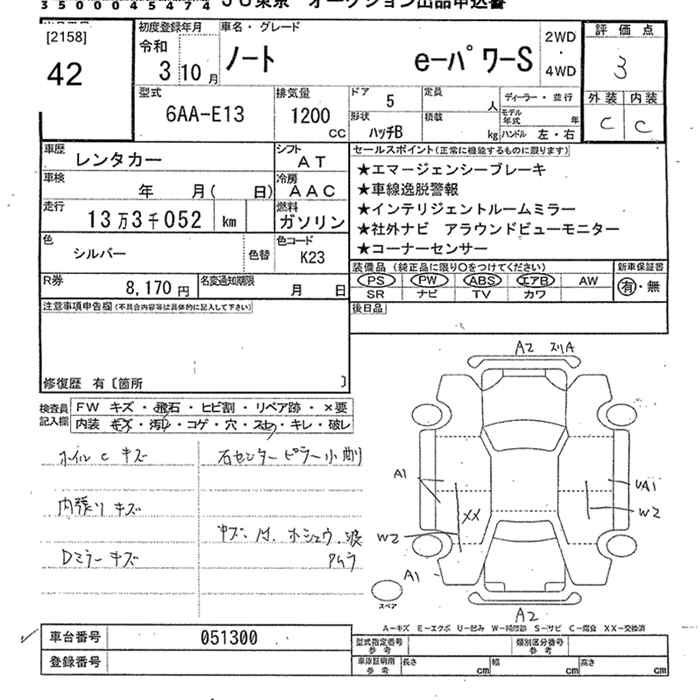 35000045474
JU東京 オークション出品申込書
[2158]
42
初度登録年月
令和
3 10 月
車名・グレード
ノート e-パワーS
2WD
・
4WD
評価点
3
外装 内装
C C
型式
6AA-E13
排気量
1200
CC
ドア 5
形状 ハッチB
定員 人
積載 kg
ディーラー・並行
モデル年式 年
ハンドル 左・右
車歴 レンタカー
シフト AT
車検 年 月( 日)
冷房 AAC
走行 13万3千052 km
燃料 ガソリン
色 シルバー
色替
色コード K23
R券 8,170円
名変通知期限 月 日
セールスポイント(正常に機能するものに限ります)
★エマージェンシーブレーキ
★車線逸脱警報
★インテリジェントルームミラー
★社外ナビ アラウンドビューモニター
★コーナーセンサー
装備品(純正品に限り○をつけてください)
新車保証書
PS PW ABS エアB AW
SR ナビ TV カワ
有・無
後日品
注意事項申告欄(不具合内容等は具体的に記入して下さい)
修復歴 有〔箇所 〕
検査員
記入欄
FW キズ・飛石・ヒビ割・リペア跡・×要
内装 キズ・汚れ・コゲ・穴・スレ・キレ・破レ
ホイル C キズ
石センターピラー小剛
内張り キズ
キズ、凹、ホシュウ、浪
Dミラーキズ
A2 スリA
A1
UA1
XX
W2
W2
A1
スペア
A2
A-キズ E-エクボ U-凹み W-補修跡 S-サビ C-腐食 XX-交換済
車台番号 051300
登録番号
型式指定番号
参考
類別区分番号
参考
車庫証明用
参考
長さ cm
幅 cm
高さ cm